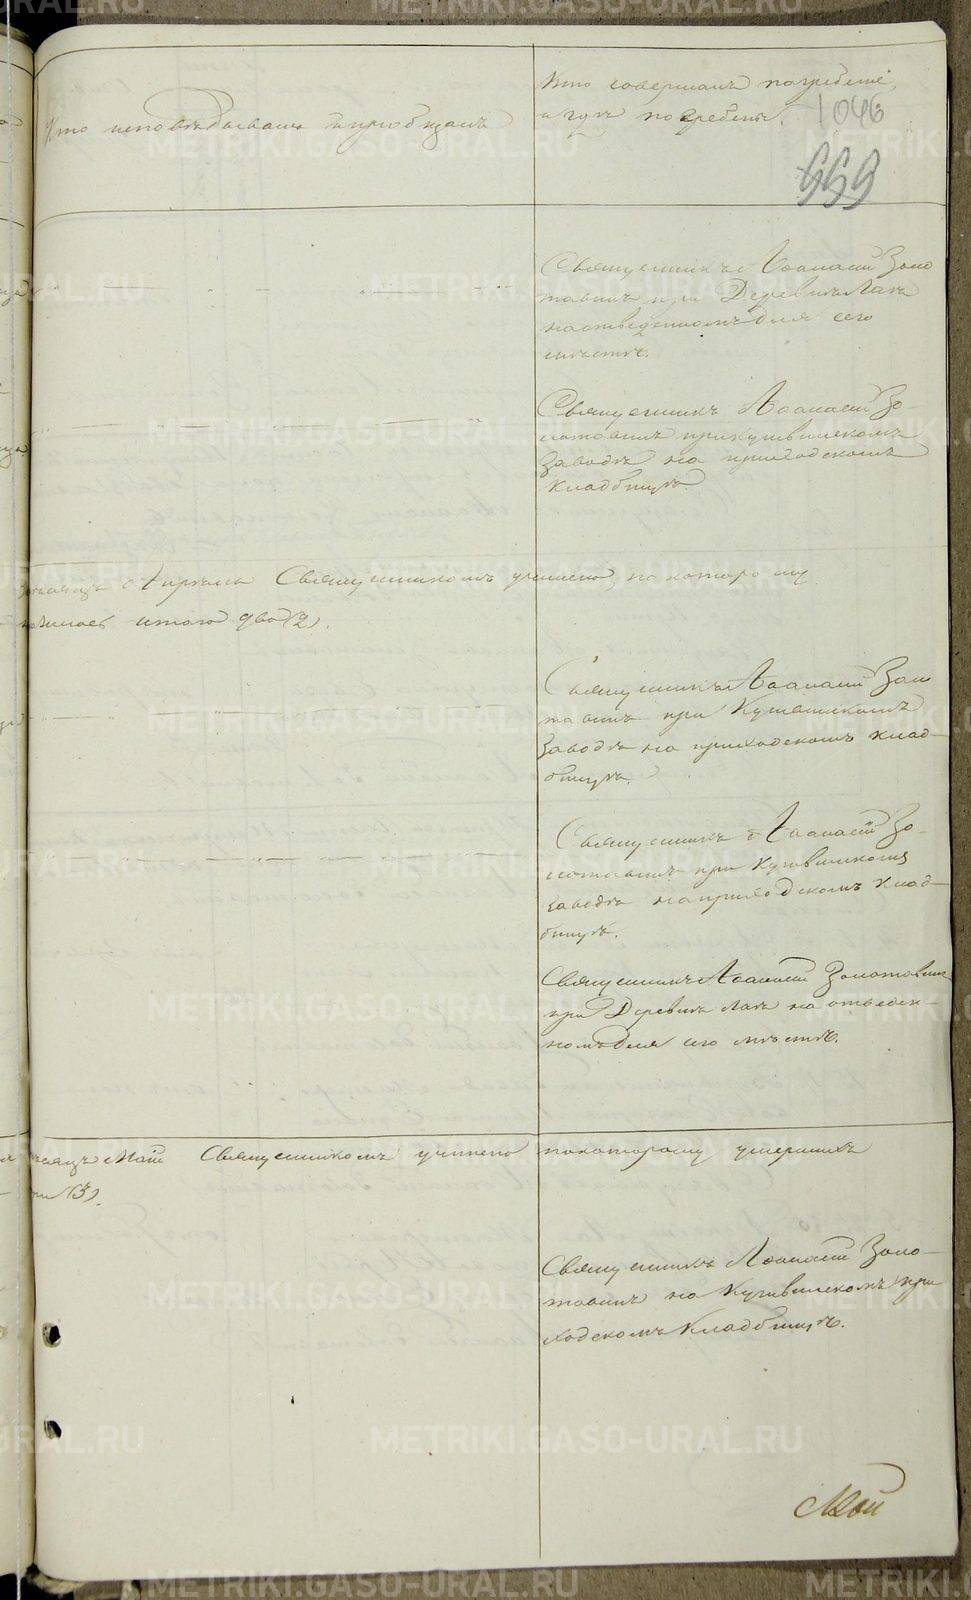 Кто исповѣдывалъ и приобщалъ
Кто совершалъ погребеніе,
и гдѣ погребены.
1046
559
Священникъ Аѳанасій Золо
тавинъ при Деревнѣ Лаѣ
на отведенномъ для сего
мѣстѣ.
Священникъ Аѳанасій Зо-
лотавинъ при Кушвинскомъ
Заводѣ на приходскомъ
Кладбищѣ.
Апрѣль Священникомъ учинено, по которому
итого два (2).
Священникъ Аѳанасій Золо
тавинъ при Кушвинскомъ
Заводѣ на приходскомъ клад-
бищѣ.
Священникъ Аѳанасій Зо-
лотавинъ при Кушвинскомъ
Заводѣ на приходскомъ клад-
бищѣ.
Священникъ Аѳанасій Золотавинъ
при Деревнѣ Лаѣ на отведен-
номъ для сего мѣстѣ.
мѣсяцъ Май Священникомъ учинено по которому умершихъ
три (3).
Священникъ Аѳанасій Золо-
тавинъ на Кушвинскомъ при
ходскомъ Кладбищѣ.
Май
METRIKI.GASO-URAL.RU